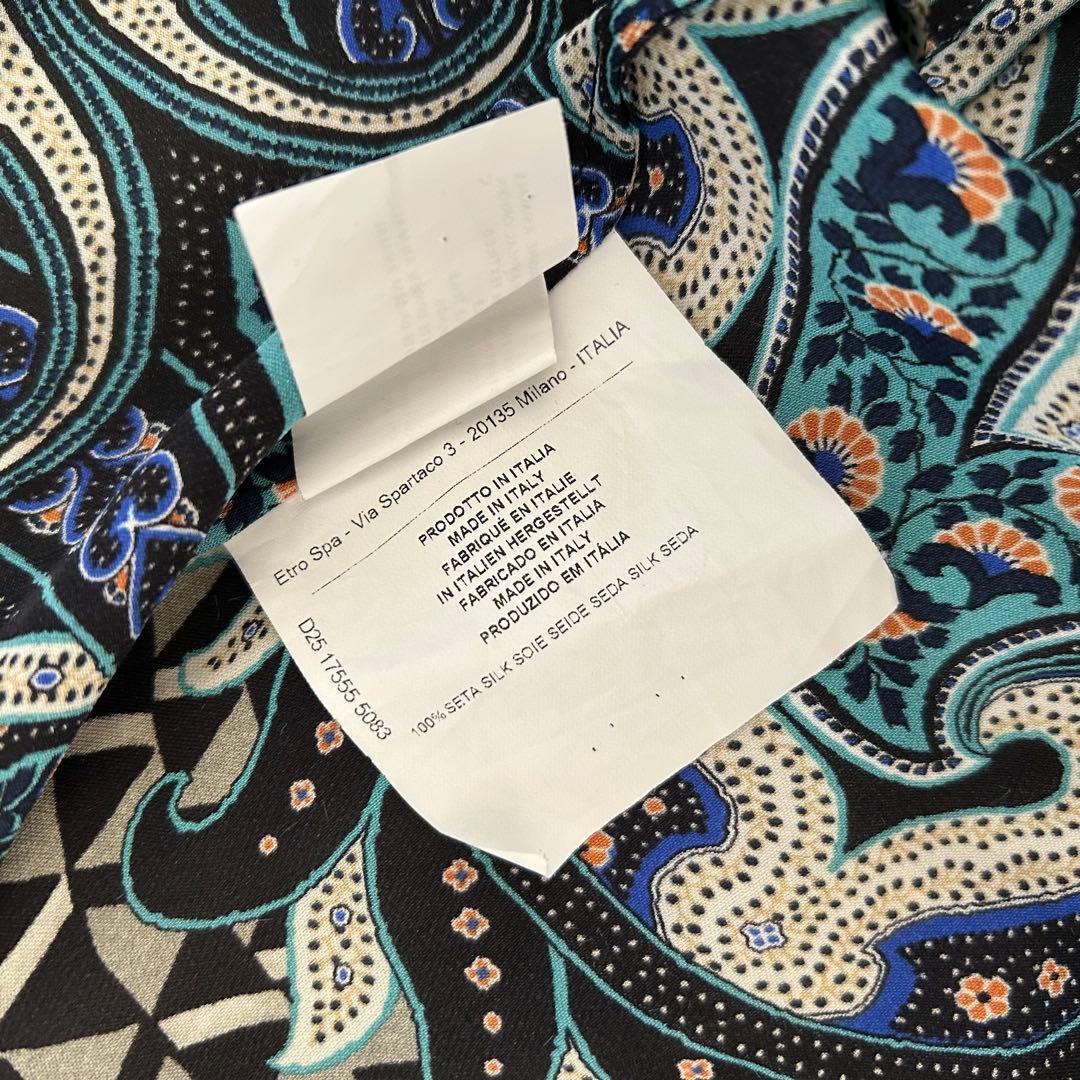 Etro Spa - Via Spartaco 3 - 20135 Milano - ITALIA
PRODOTTO IN ITALIA
MADE IN ITALY
FABRIQUÉ EN ITALIE
IN ITALIEN HERGESTELLT
FABRICADO EN ITALIA
MADE IN ITALY
PRODUZIDO EM ITÁLIA
D25 17555 5083
100% SETA SILK SOIE SEIDE SEDA SILK SEDA